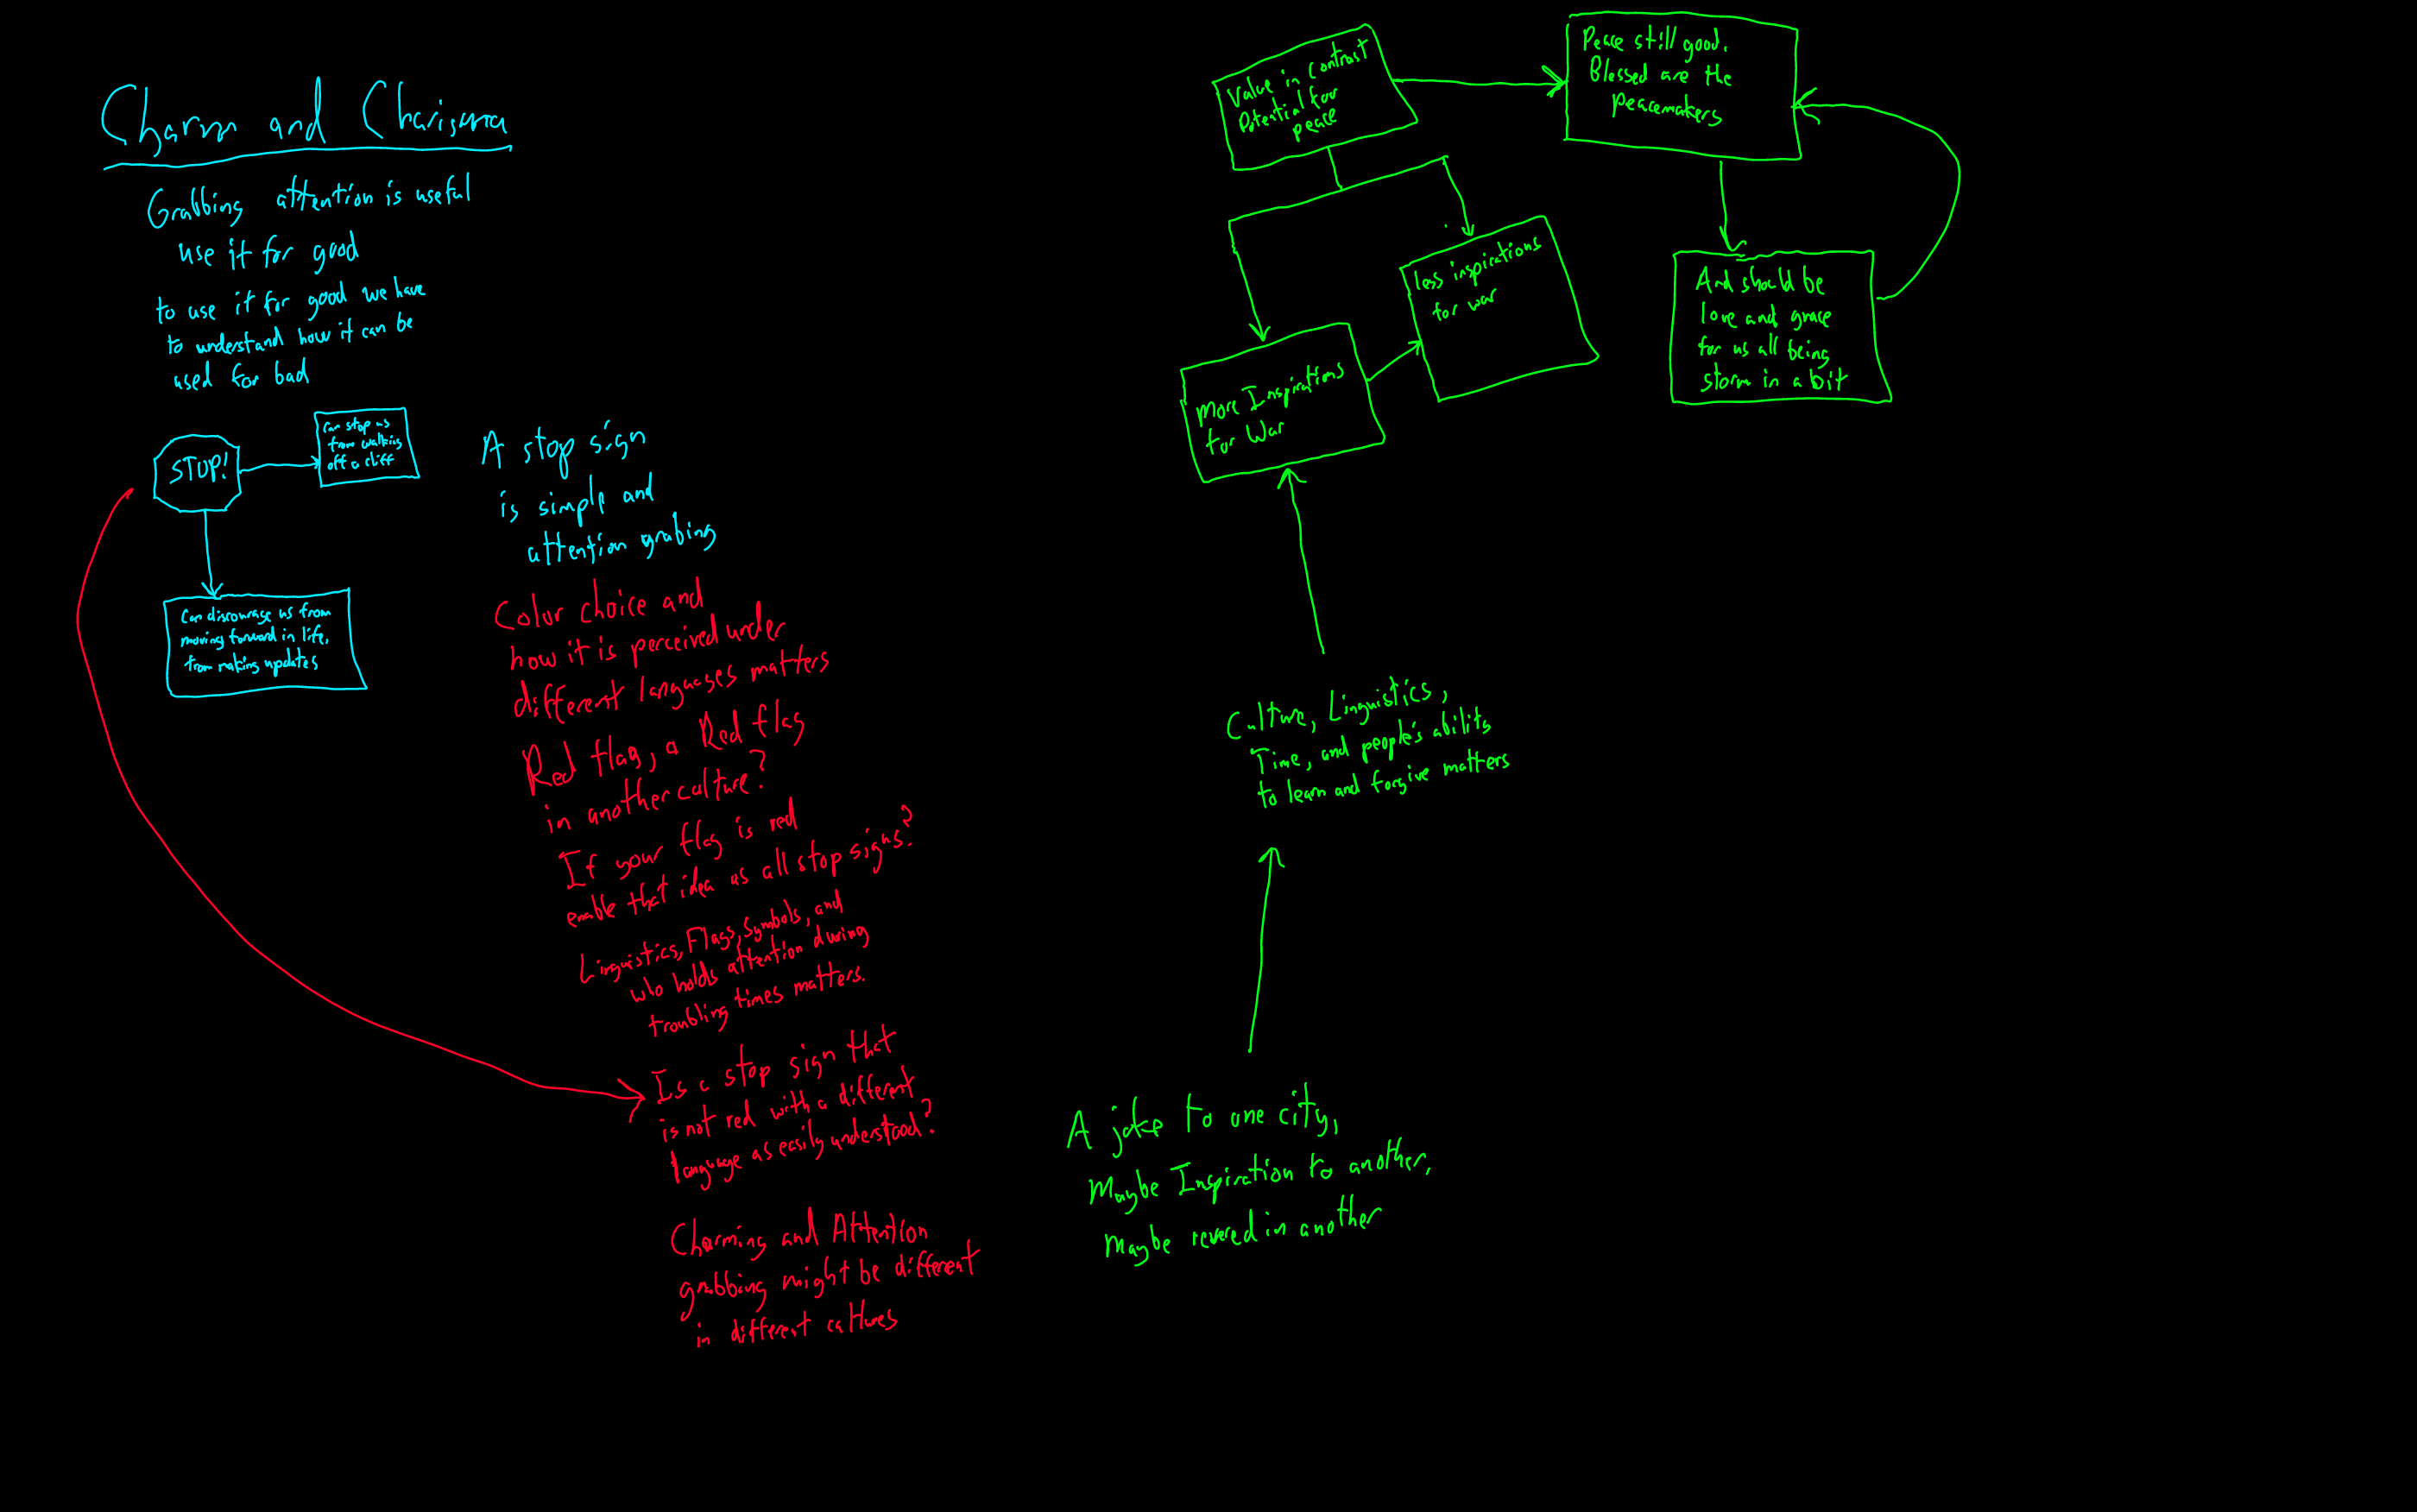 Charm and Charisma
Grabbing attention is useful
use it for good
to use it for good we have
to understand how it can be
used for bad
STOP!
can stop us
from walking
off a cliff
Can discourage us from
moving forward in life,
from making updates
A stop sign
is simple and
attention grabing
Color choice and
how it is perceived under
different languages matters
Red flag, a Red flag
in another culture?
If your flag is red
enable that idea as all stop signs?
Linguistics, Flags, Symbols, and
who holds attention during
troubling times matters.
Is a stop sign that
is not red with a different
language as easily understood?
Charming and Attention
grabbing might be different
in different cultures
Value in Contrast
Potential for
peace
Peace still good.
Blessed are the
peacemakers
And should be
love and grace
for us all being
storm in a bit
less inspirations
for war
More Inspirations
for War
Culture, Linguistics,
Time, and people's ability
to learn and forgive matters
A joke to one city,
Maybe Inspiration to another,
Maybe revered in another